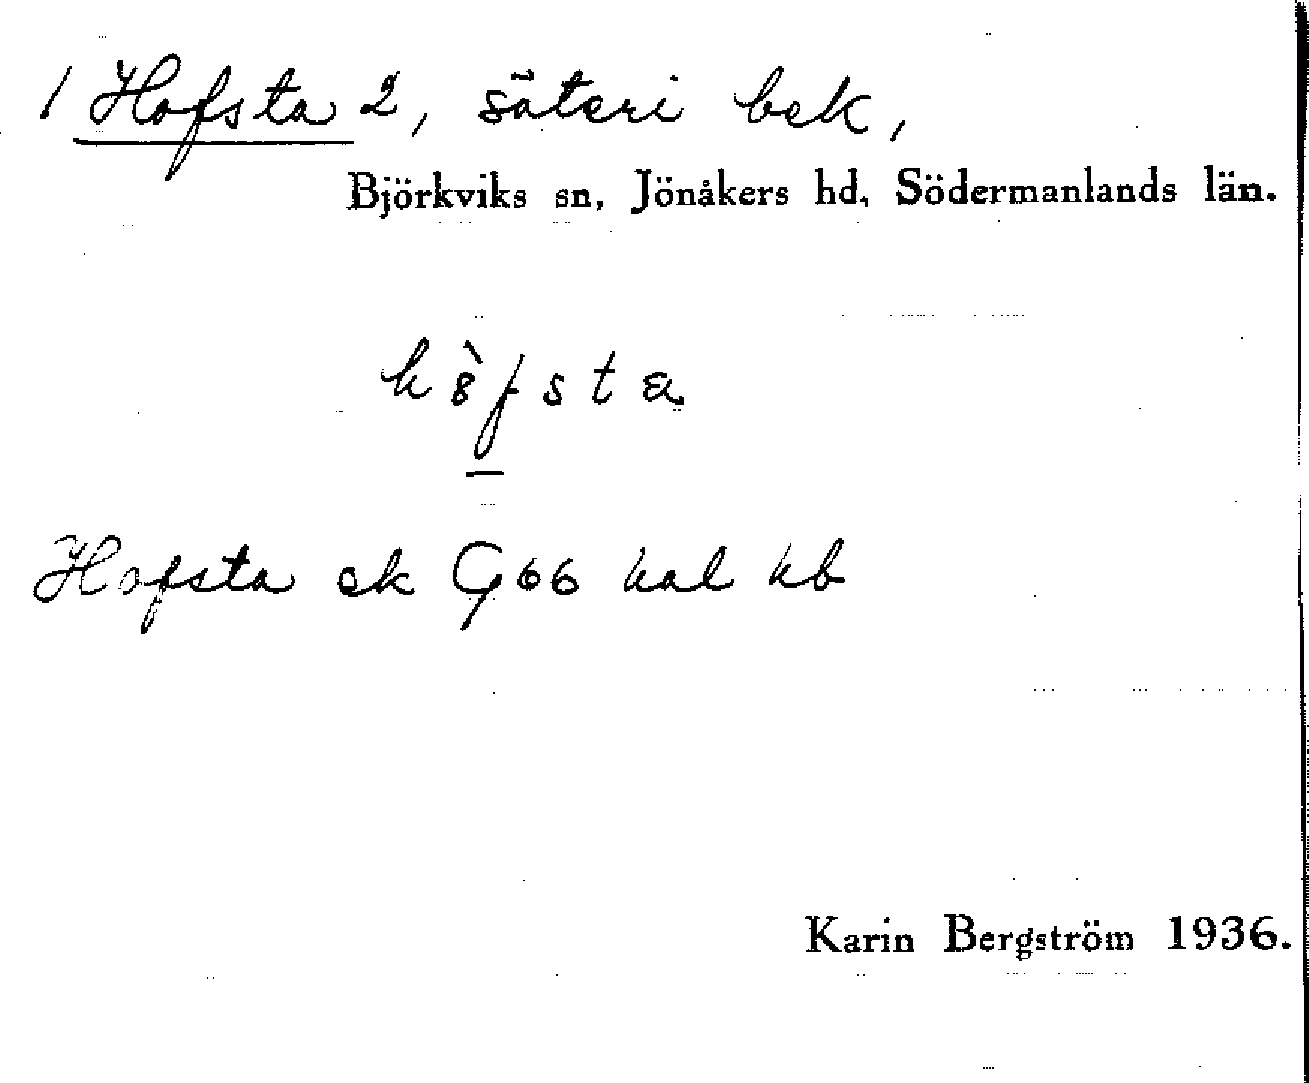 1 Hofsta 2, säteri bek,
Björkviks sn, Jönåkers hd, Södermanlands län.
h8̀fsta
Hofsta ek G66 hal hb
Karin Bergström 1936.